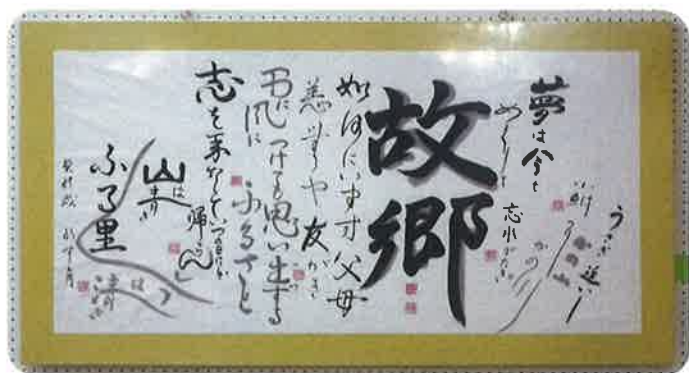 うさぎ追いし
かの山
小鮒
かの川
夢は今も
めぐりて
忘れがたき
故郷
如何にいます父母
恙無しや友がき
雨に風に
つけても思い出する
ふるさと
志を果たしていつの日にか
帰らん
山は青き
ふる里
は清き